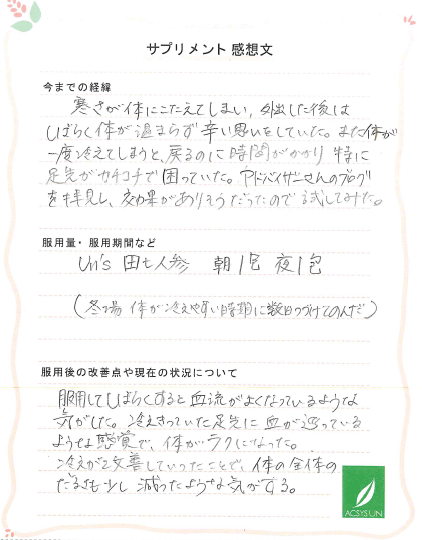 サプリメント 感想文
今までの経緯
寒さが体にこたえてしまい、外出した後は
しばらく体が温まらず辛い思いをしていた。また体が
一度冷えてしまうと、戻るのに時間がかかり 特に
足先がカチコチで困っていた。アドバイザーさんのブログ
を拝見し、効果がありそうだったので試してみた。
服用量・服用期間など
Un's 田七人参 朝1包 夜1包
(冬場 体が冷えやすい時期に数日つづけてのんだ)
服用後の改善点や現在の状況について
服用してしばらくすると血流がよくなっているような
気がした。冷えきっていた足先に血が巡っている
ような感覚で、体がラクになった。
冷えが改善していったことで、体の全体の
だるさも少し減ったような気がする。
ACSYSUN